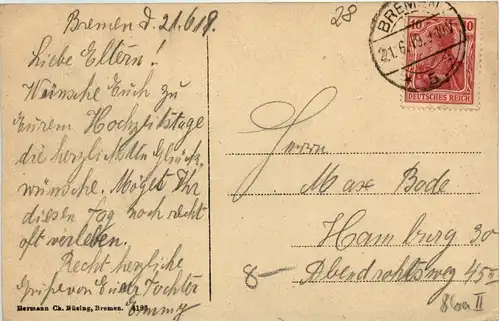 Bremen d. 21.6.19.
Liebe Eltern!
Wünsche Euch zu
Eurem Hochzeitstage
die herzlichsten Glück-
wünsche. Möget Ihr
diesen Tag noch recht
oft verleben.
Recht herzliche
Grüße von Eurer Tochter
Emmy
Hermann Ch. Büsing, Bremen. 4186
28
BREMEN
21.6.19.
5
10
DEUTSCHES REICH
Herrn
Max Bode
Hamburg 30
Abendrothsweg 45 III
8-